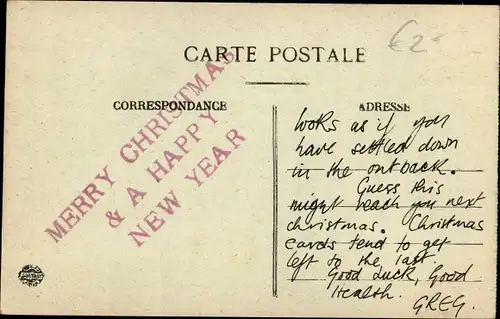 €2-
CARTE POSTALE
CORRESPONDANCE
MERRY CHRISTMAS
& A HAPPY
NEW YEAR
ADRESSE
looks as if you
have settled down
in the outback.
Guess this
might reach you next
christmas. Christmas
cards tend to get
left to the last.
Good Luck, Good
Health.
GREG.